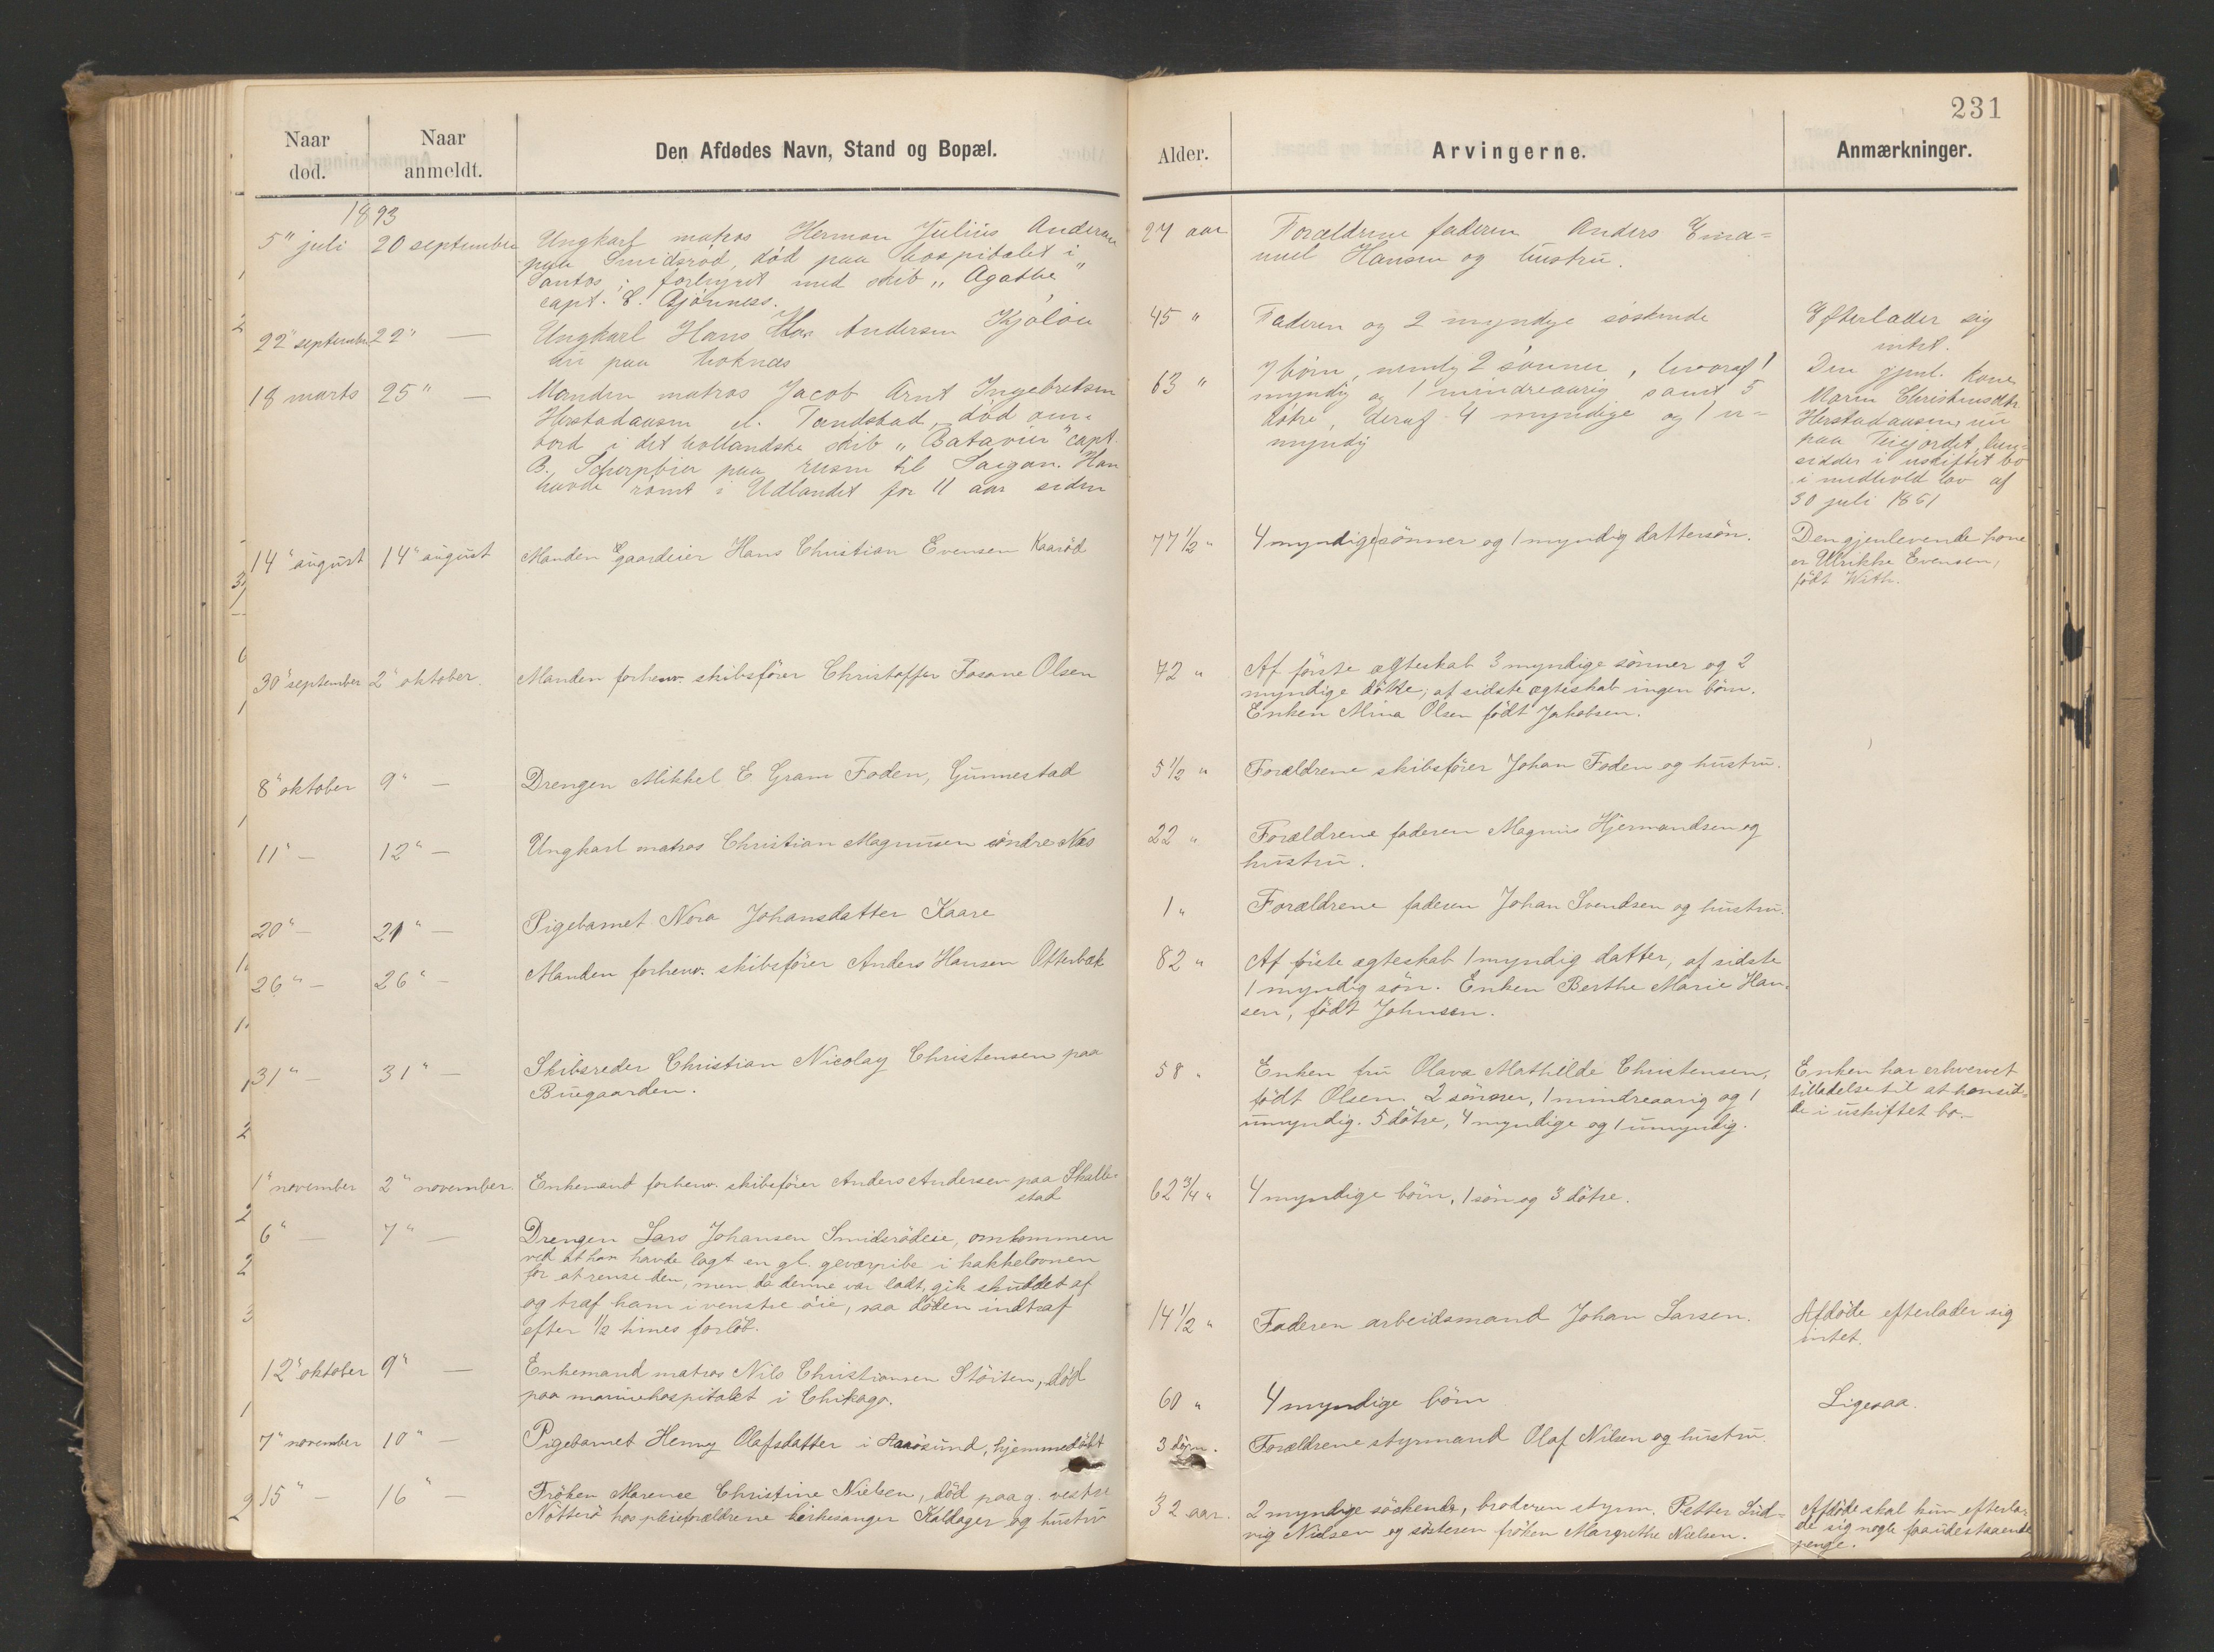 231
Naar død.
Naar anmeldt.
Den Afdødes Navn, Stand og Bopæl.
Alder.
Arvingerne.
Anmærkninger.
1893
5" juli
20 september
Ungkarl matros Herman Julius Andersen
paa Smidsrød, død paa hospitalet i
Santos; forhyret med skib "Agathe"
capt. E. Gjönness.
24 aar
Forældrene faderen Anders Ema=
nuel Hansen og hustru.
22" september
22" —
Ungkarl Hans Andersen Kjöløe
nu paa
45 "
Faderen og 2 myndige søskende
Efterlader sig
intet.
18 marts
25" —
Manden matros Jacob Arnt Ingebretsen
Herstadaasen el. Tandstad, død om=
bord i det hollandske skib "Batavier" capt.
B. Scherpbier paa reisen til Saigon. Han
havde römt i Udlandet for 11 aar siden
63 "
7 börn, nemlig 2 sönner, hvoraf 1
myndig og 1 mindreaarig samt 5
dötre, deraf 4 myndige og 1 u=
myndig
Den gjenl. kone
Maren Christensdtr
Herstadaasen, nu
paa Teiejordet, hen=
sidder i uskiftet bo
i medhold lov af
30 juli 1851
14" august
14" august
Manden gaardeier Hans Christian Evensen Kaarød
77 1/2 "
4 myndige sönner og 1 myndig dattersön.
Den gjenlevende kone
er Ulrikke Evensen,
født With.
30" september
2" oktober.
Manden forhenv. skibsfører Christoffer Fosane Olsen
72 "
Af förste ægteskab 3 myndige sönner og 2
myndige dötre; af sidste ægteskab ingen börn.
Enken Mina Olsen født Jakobsen.
8" oktober
9" —
Drengen Mikkel E. Gram Foden, Gunnestad
5 1/2 "
Forældrene skibsfører Johan Foden og hustru.
11" —
12" —
Ungkarl matros Christian Magnusen söndre Nes
22 "
Forældrene faderen Magnus Hjermandsen og
hustru.
20" —
21" —
Pigebarnet Nora Johansdatter Kaare
1 "
Forældrene faderen Johan Svendsen og hustru.
26" —
26" —
Manden forhenv. skibsfører Anders Hansen Otterbæk
82 "
Af förste ægteskab 1 myndig datter, af sidste
1 myndig sön. Enken Berthe Marie Han=
sen, født Johnsen.
31" —
31" —
Skibsreder Christian Nicolay Christensen paa
Buegaarden.
58 "
Enken fru Olava Mathilde Christensen,
født Olsen. 2 sönner, 1 mindreaarig og 1
umyndig. 5 dötre, 4 myndige og 1 umyndig.
Enken har erhvervet
tilladelse til at hensid=
de i uskiftet bo.—
1" november
2" november.
Enkemand forhenv. skibsfører Anders Andersen paa Skalle=
stad
62 3/4 "
4 myndige börn, 1 sön og 3 dötre.
6" —
7" —
Drengen Lars Johansen Smidsrødeie, omkommen
ved at han havde lagt en gl. geværpibe i kakkelovnen
for at rense den, men da denne var ladt, gik skuddet af
og traf ham i venstre öie, saa döden indtraf
efter 1/2 times forløb.
14 1/2 "
Faderen arbeidsmand Johan Larsen.
Afdøde efterlader sig
intet.
12" oktober
9" —
Enkemand matros Nils Christiansen Stöiten, död
paa marinehospitalet i Chikago.
60 "
4 myndige börn
Ligesaa.
7" november
10" —
Pigebarnet Henny Olafsdatter i Aarøsund, hjemmedøbt
3 døgn.
Forældrene styrmand Olaf Nilsen og hustru
15" —
16" —
Fröken Marense Christine Nielsen, död paa g. vestre
Nötterö hos pleieforældrene kirkesanger Kaldager og hustru
32 aar.
2 myndige söskende, broderen styrm. Petter Lud=
vig Nielsen og sösteren fröken Margrethe Nielsen.
Afdøde skal kun efterla=
de sig nogle faa udestaaende
penge.